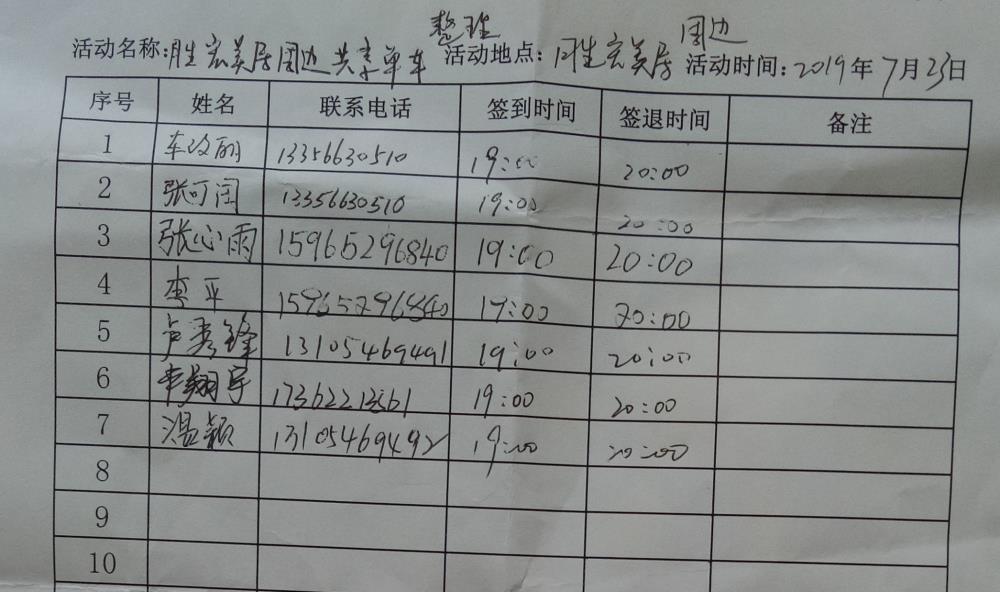 活动名称:胜宏美居周边共享单车整理 活动地点:胜宏美居周边 活动时间:2019年7月23日
序号 姓名 联系电话 签到时间 签退时间 备注
1 车改丽 13356630510 19:00 20:00
2 张可闰 13356630510 19:00 20:00
3 张心雨 15965296840 19:00 20:00
4 李平 15965296840 19:00 20:00
5 卢秀锋 13105469491 19:00 20:00
6 李翔宇 19:00 20:00
7 温颖 13105469492 19:00 20:00
8
9
10